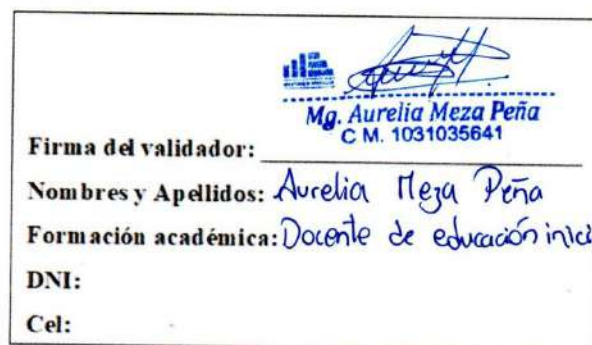 Mg. Aurelia Meza Peña
C M. 1031035641
Firma del validador:
Nombres y Apellidos: Aurelia Meza Peña
Formación académica: Docente de educación inici
DNI:
Cel: